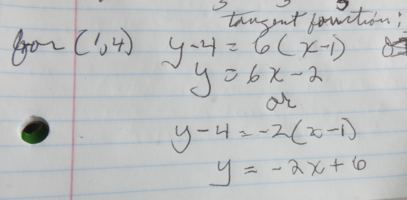 tangent function;
for (1,4) y-4 = 6(x-1)
y = 6x-2
or
y-4 = -2(x-1)
y = -2x+6